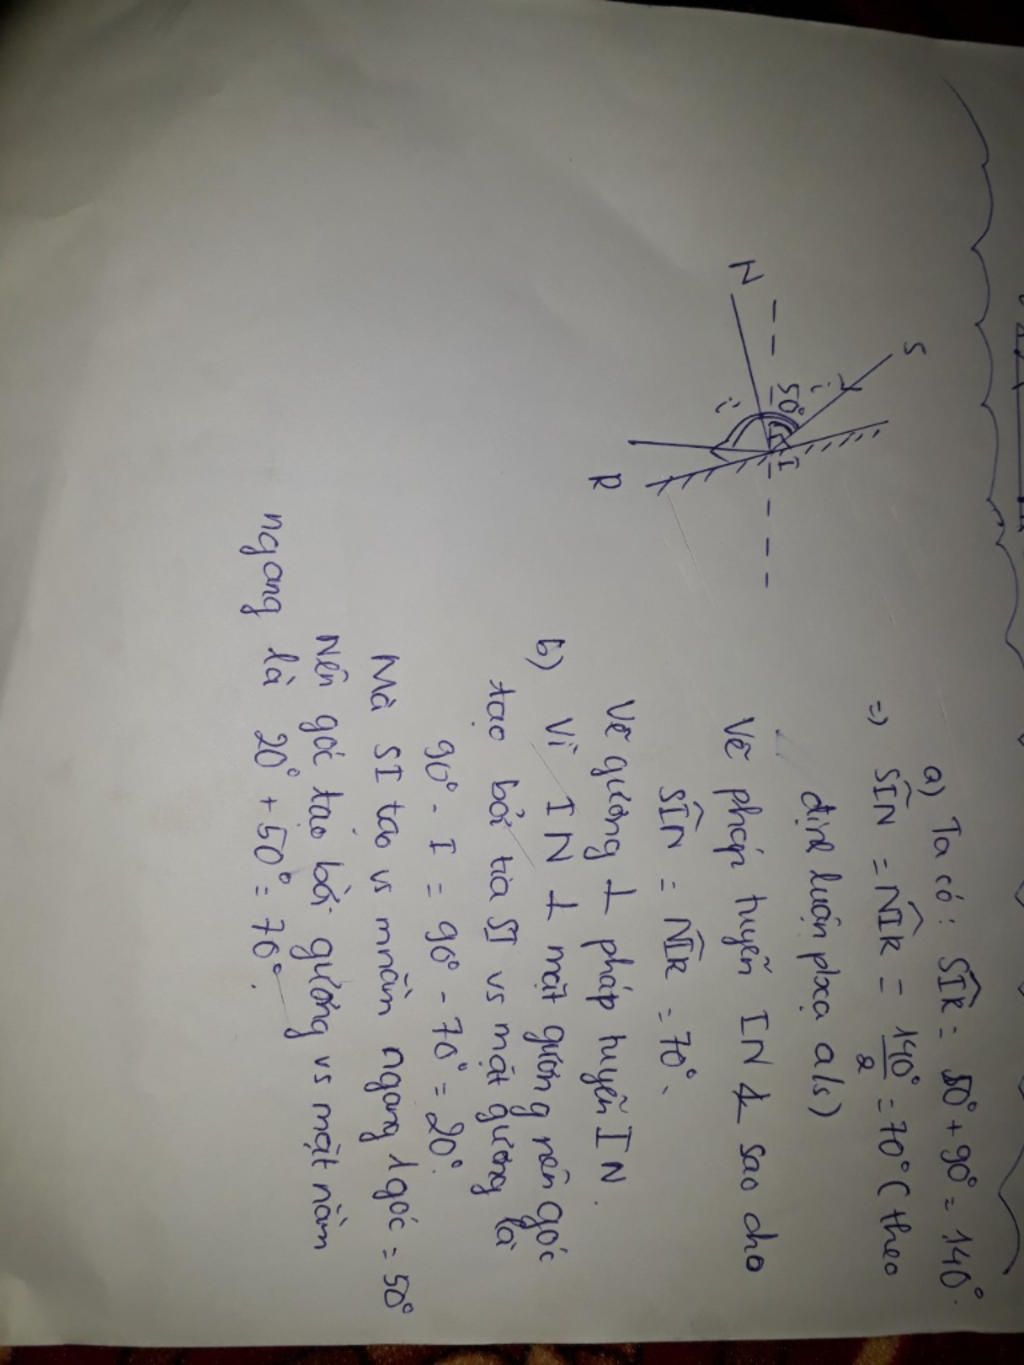 N
S
i
50°
i'
I
R
a) Ta có: SIR = 50° + 90° = 140°.
=) SIN = NIR = 140°/2 = 70° (theo
định luận pxạ a/s)
Vẽ pháp tuyến IN sao cho
SIN = NIR = 70°.
Vẽ gương ⊥ pháp tuyến IN.
b) Vì IN ⊥ mặt gương nên góc
tạo bởi tia SI vs mặt gương là
90° - I = 90° - 70° = 20°.
Mà SI tạo vs mnằm ngang 1 góc = 50°
Nên góc tạo bởi gương vs mặt nằm
ngang là 20° + 50° = 70°.